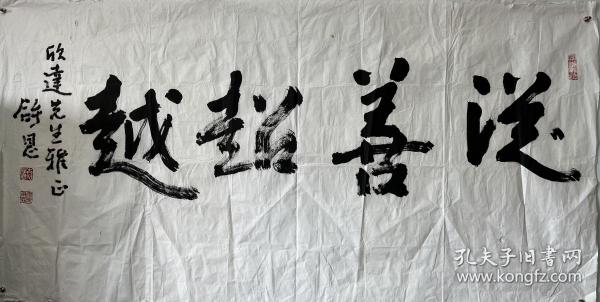 従善超越
欣達先生雅正
孔夫子旧书网
www.kongfz.com